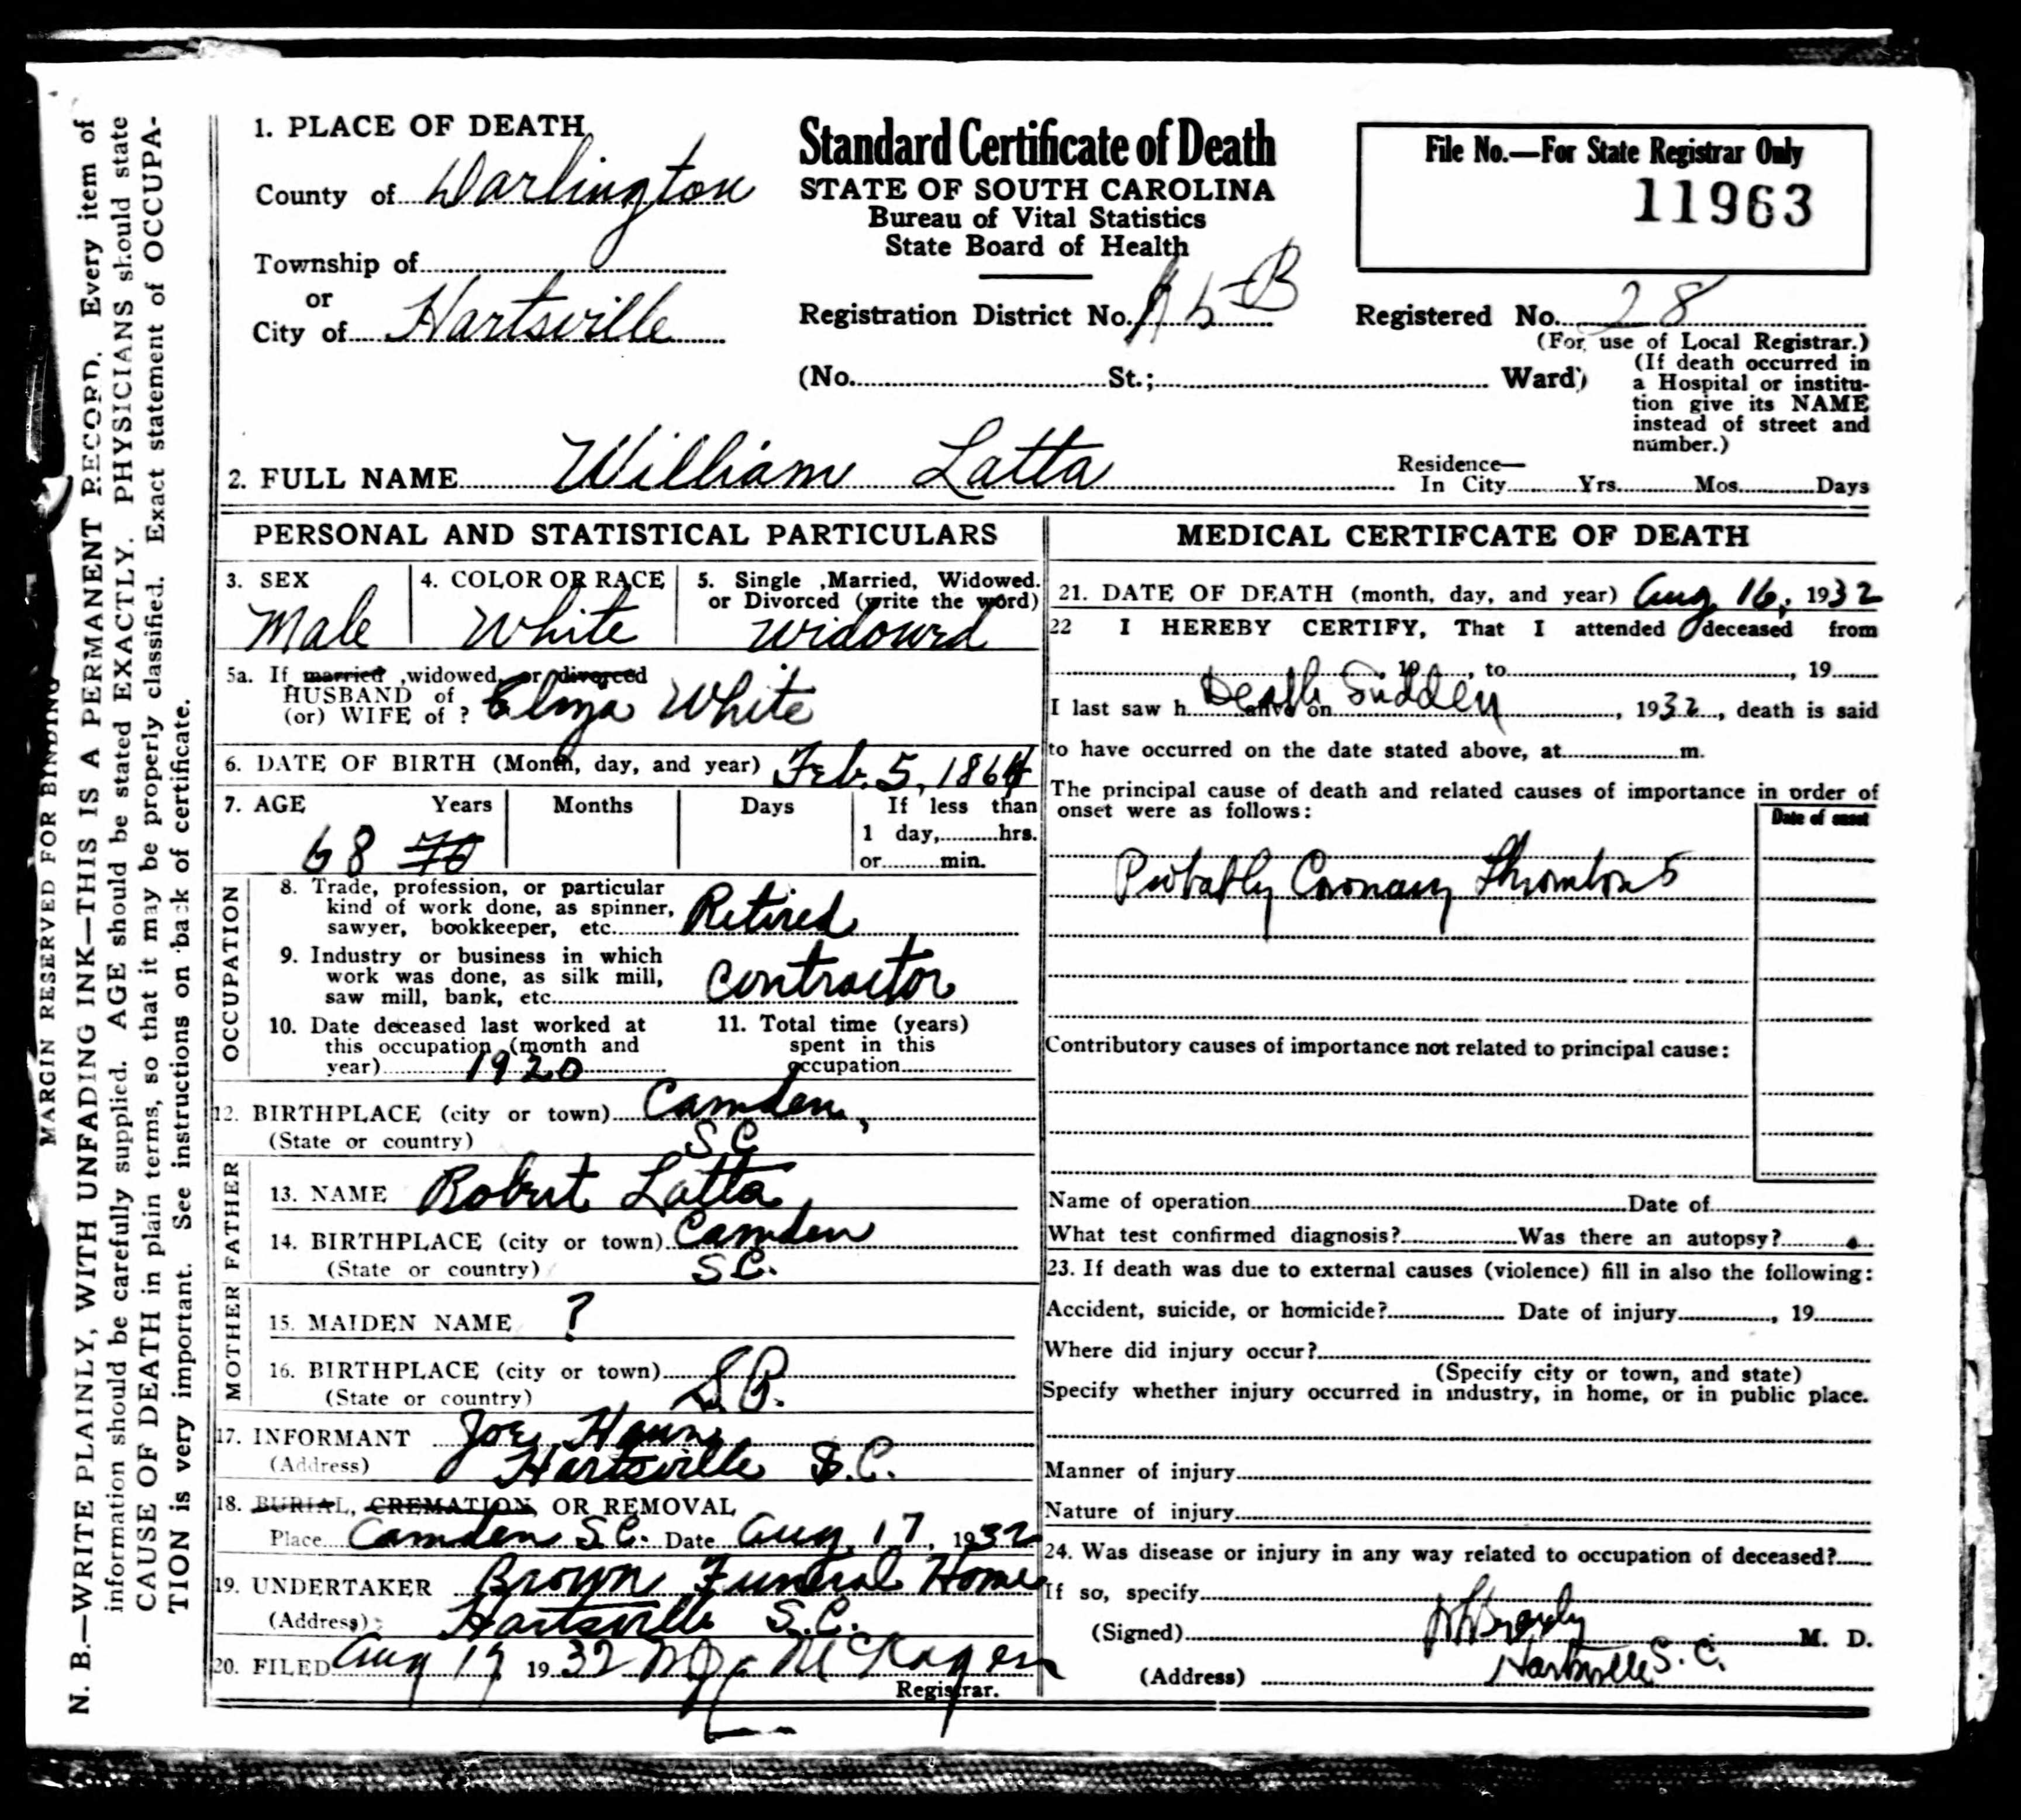 1. PLACE OF DEATH
County of Darlington
Township of
or
City of Hartsville
Standard Certificate of Death
STATE OF SOUTH CAROLINA
Bureau of Vital Statistics
State Board of Health
Registration District No.
(No. St.; Ward)
File No.—For State Registrar Only
11963
Registered No. 28
(For use of Local Registrar.)
(If death occurred in
a Hospital or institu-
tion give its NAME
instead of street and
number.)
2. FULL NAME William Latta
Residence—
In City Yrs. Mos. Days
PERSONAL AND STATISTICAL PARTICULARS
3. SEX
Male
4. COLOR OR RACE
White
5. Single ,Married, Widowed.
or Divorced (write the word)
Widowed
5a. If married ,widowed, or divorced
HUSBAND of
(or) WIFE of ? White
6. DATE OF BIRTH (Month, day, and year) Feb. 5, 1864
7. AGE Years Months Days If less than
1 day, hrs.
or min.
68 70
OCCUPATION
8. Trade, profession, or particular
kind of work done, as spinner,
sawyer, bookkeeper, etc. Retired
9. Industry or business in which
work was done, as silk mill,
saw mill, bank, etc. Contractor
10. Date deceased last worked at
this occupation (month and
year) 1920
11. Total time (years)
spent in this
occupation
12. BIRTHPLACE (city or town) Camden,
(State or country) S C
FATHER
13. NAME Robert Latta
14. BIRTHPLACE (city or town) Camden
(State or country) S.C.
MOTHER
15. MAIDEN NAME ?
16. BIRTHPLACE (city or town)
(State or country) S.C.
17. INFORMANT Joe
(Address) Hartsville S.C.
18. BURIAL, CREMATION OR REMOVAL
Place Camden S.C. Date Aug. 17, 1932
19. UNDERTAKER Brown Funeral Home
(Address) Hartsville S.C.
20. FILED Aug 1932
Registrar.
MEDICAL CERTIFCATE OF DEATH
21. DATE OF DEATH (month, day, and year) Aug 16, 1932
22 I HEREBY CERTIFY, That I attended deceased from
, 19 , to , 19
Death Sudden
I last saw h alive on , 1932, death is said
to have occurred on the date stated above, at m.
The principal cause of death and related causes of importance in order of
onset were as follows:
Date of onset
Probably Coronary Thrombosis
Contributory causes of importance not related to principal cause:
Name of operation Date of
What test confirmed diagnosis? Was there an autopsy?
23. If death was due to external causes (violence) fill in also the following:
Accident, suicide, or homicide? Date of injury , 19
Where did injury occur?
(Specify city or town, and state)
Specify whether injury occurred in industry, in home, or in public place.
Manner of injury
Nature of injury
24. Was disease or injury in any way related to occupation of deceased?
If so, specify
(Signed) M. D.
(Address) Hartsville S. C.
MARGIN RESERVED FOR BINDING
N. B.—WRITE PLAINLY, WITH UNFADING INK—THIS IS A PERMANENT RECORD. Every item of
information should be carefully supplied. AGE should be stated EXACTLY. PHYSICIANS should state
CAUSE OF DEATH in plain terms, so that it may be properly classified. Exact statement of OCCUPA-
TION is very important. See instructions on back of certificate.